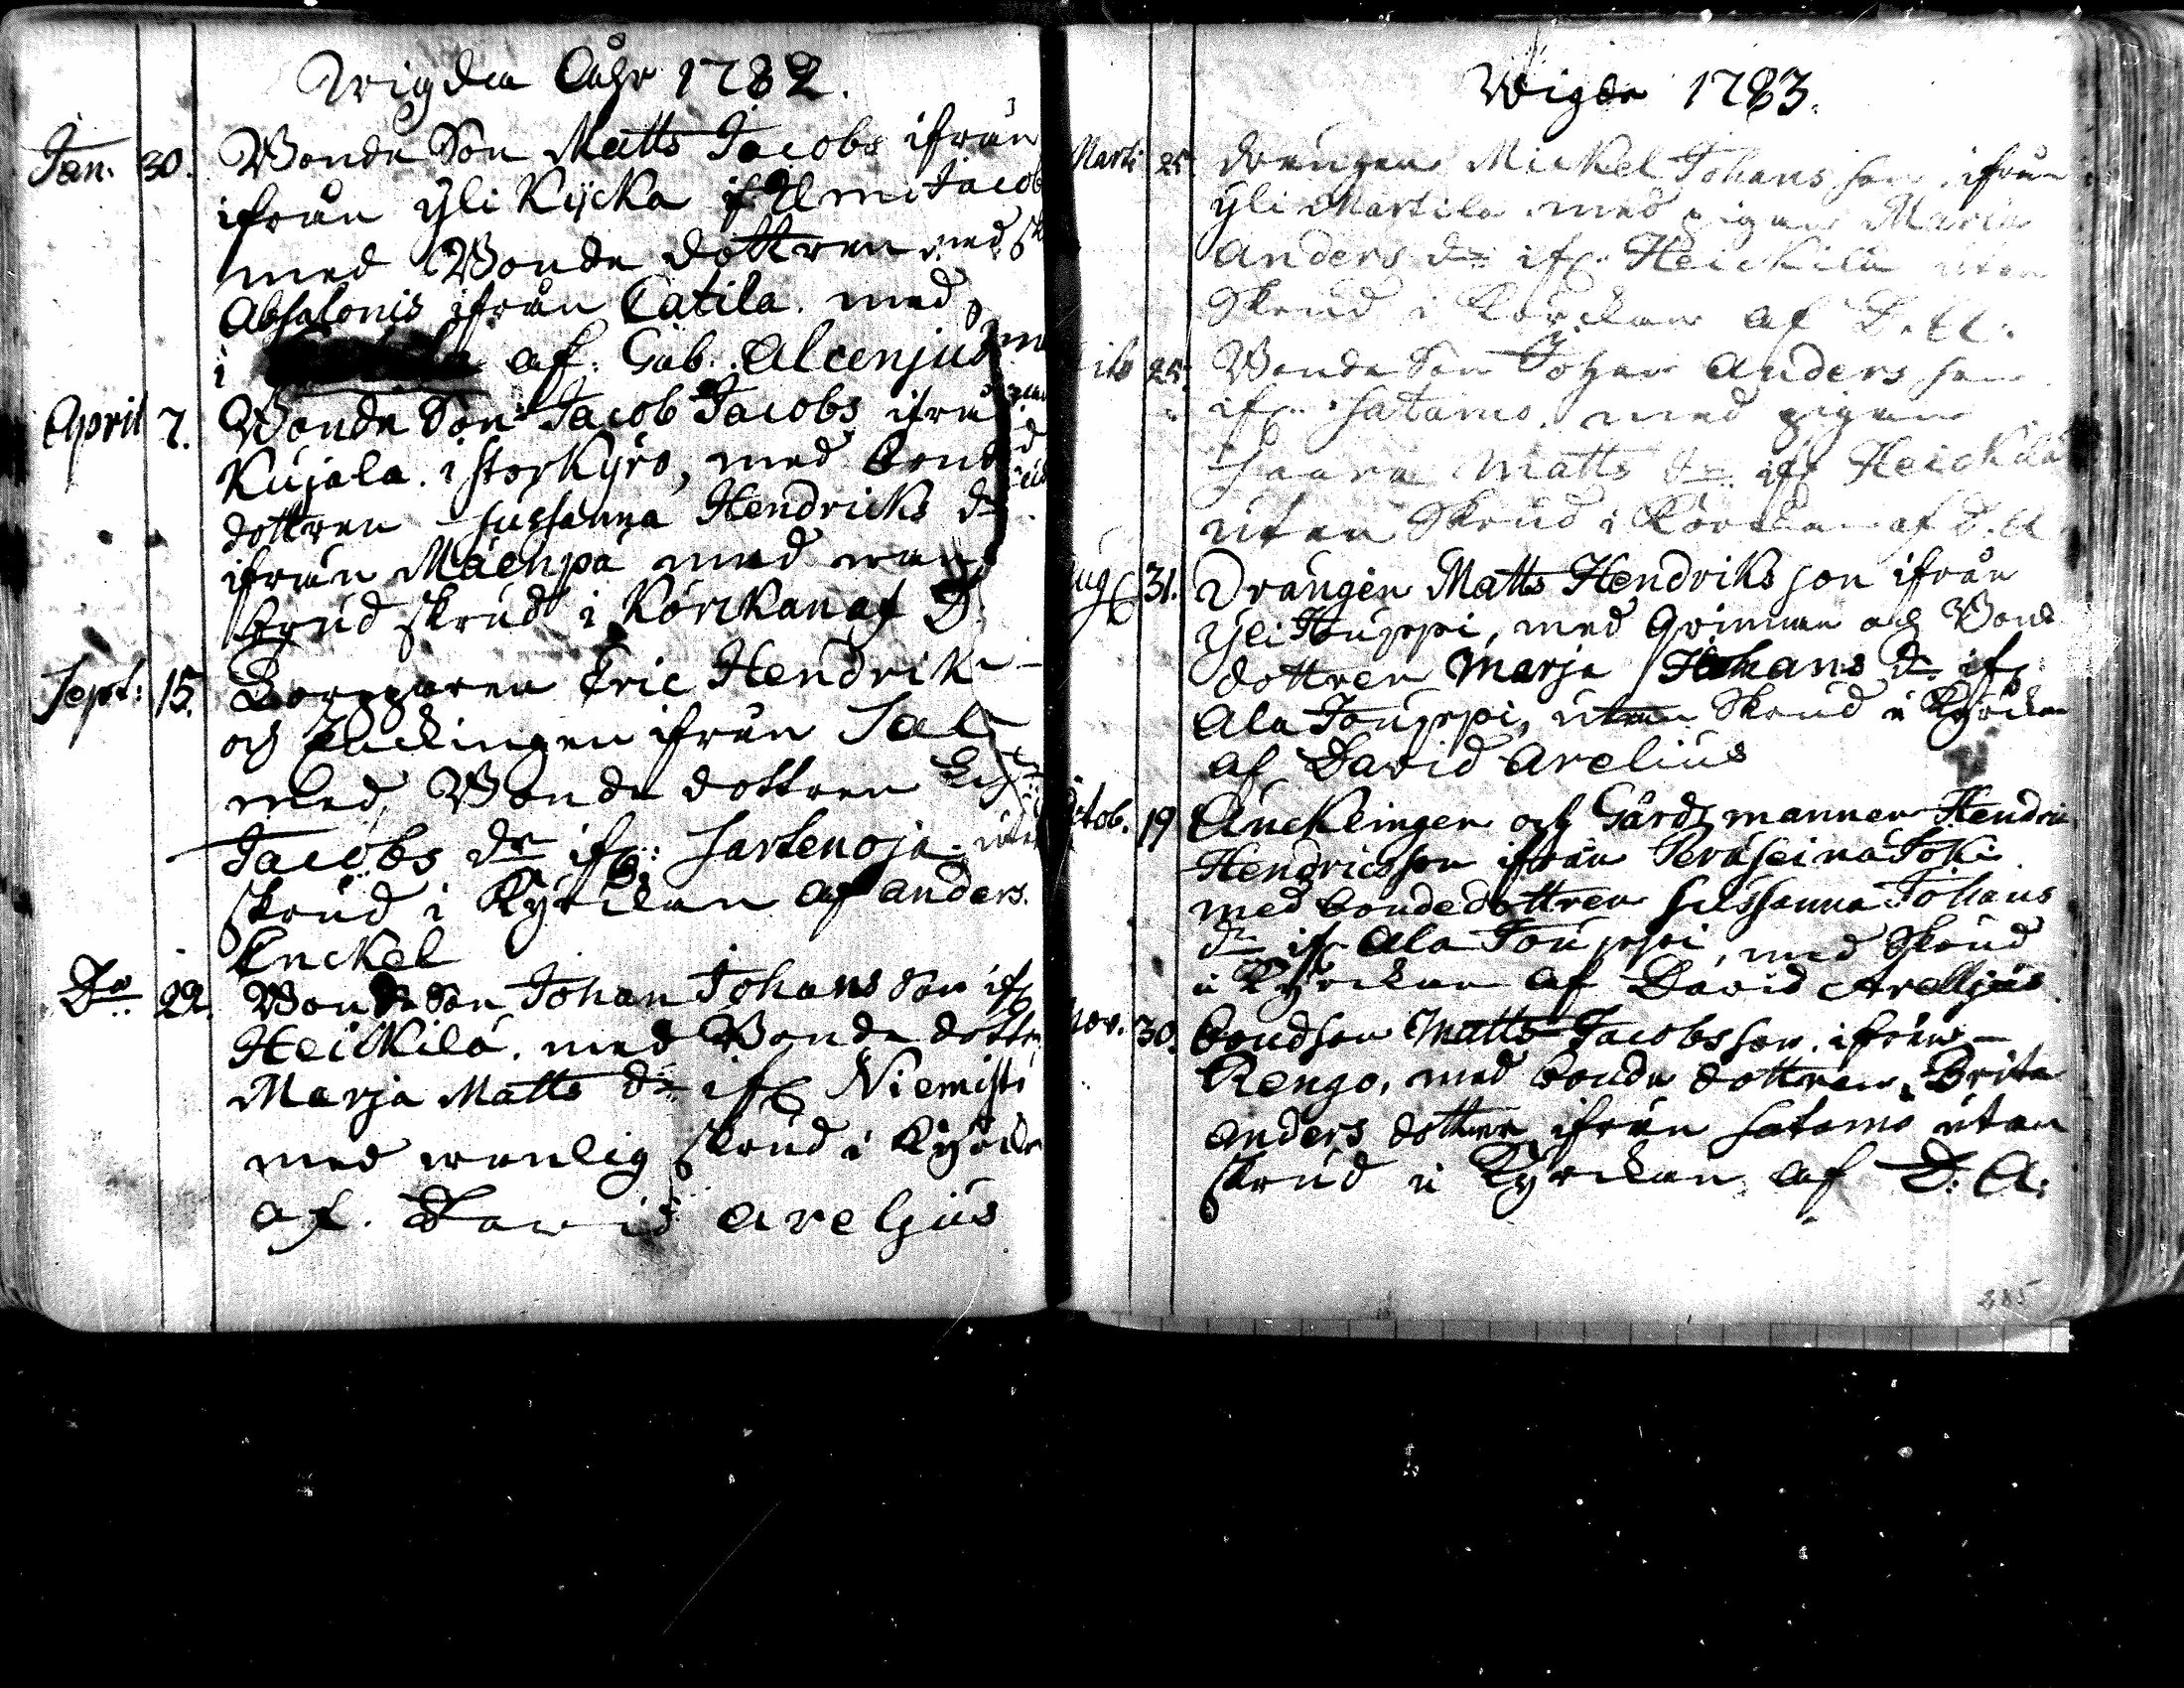 Wigda Åhr 1782.
Jan. 30. Bonde Son Matts Jacobs ifrån
ifrån yli Kycka if Ilmi Jacob
med Bonde dottren med
Absalonis ifrån Catila. med
i af. Gab. Alcenjus
April 7. Bonde Son Jacob Jacobs ifrå
Kujala i storkyro, med Bond
dottren Sussanna Hendricks dr
ifrån Mäenpä med wan
brud skrud i Körckan af D.
Sept: 15. Borgaren Eric Hendrik
och Enckingen ifrån Sal
med Bonde dottren
Jacobs dr ifr: Sartenoja
skrud i Kyrckan af anders.
Enckel
Do 22. Bonde Son Johan Johans Son ifr
Heickilä. med Bonde dottr
Marja Matts dr ifr Niemistö
med wanlig skrud i Kyrck
af. David Areljus
Wigde 1783.
Marti 25. drengen Mickel Johans son ifrån
yli Martila med pigan Maria
Anders dr ifr. Heickilä utan
Skrud i Körckan af D. A.
25. Bonde Son Johan Anders son
ifr. Satamo med pigan
Saara Matts dr ifr Heickilä
utan Skrud i Körckan af D. A
Aug 31. Drängen Matts Hendriks son ifrån
Yli Touppi, med Qvinnan och Bond
dottren Marja Johans dr ifr
Ala Touppi, utan Skrud i Kyrckan
af David Arelius
Octob. 19 Äncklingen och Gårdsmannen Hendri
Hendricsson ifrån Peräseinäjoki
med bondedottren Sussanna Johans
dr ifr Ala Touppi, med Skrud
i Kyrckan af David Areljus
Nov. 30. Bondson Matts Jacobsson. ifrån
Rengo, med Bonde dottren Brita
Anders dotter ifrån Satamo utan
skrud i Kyrckan af D: A:
285